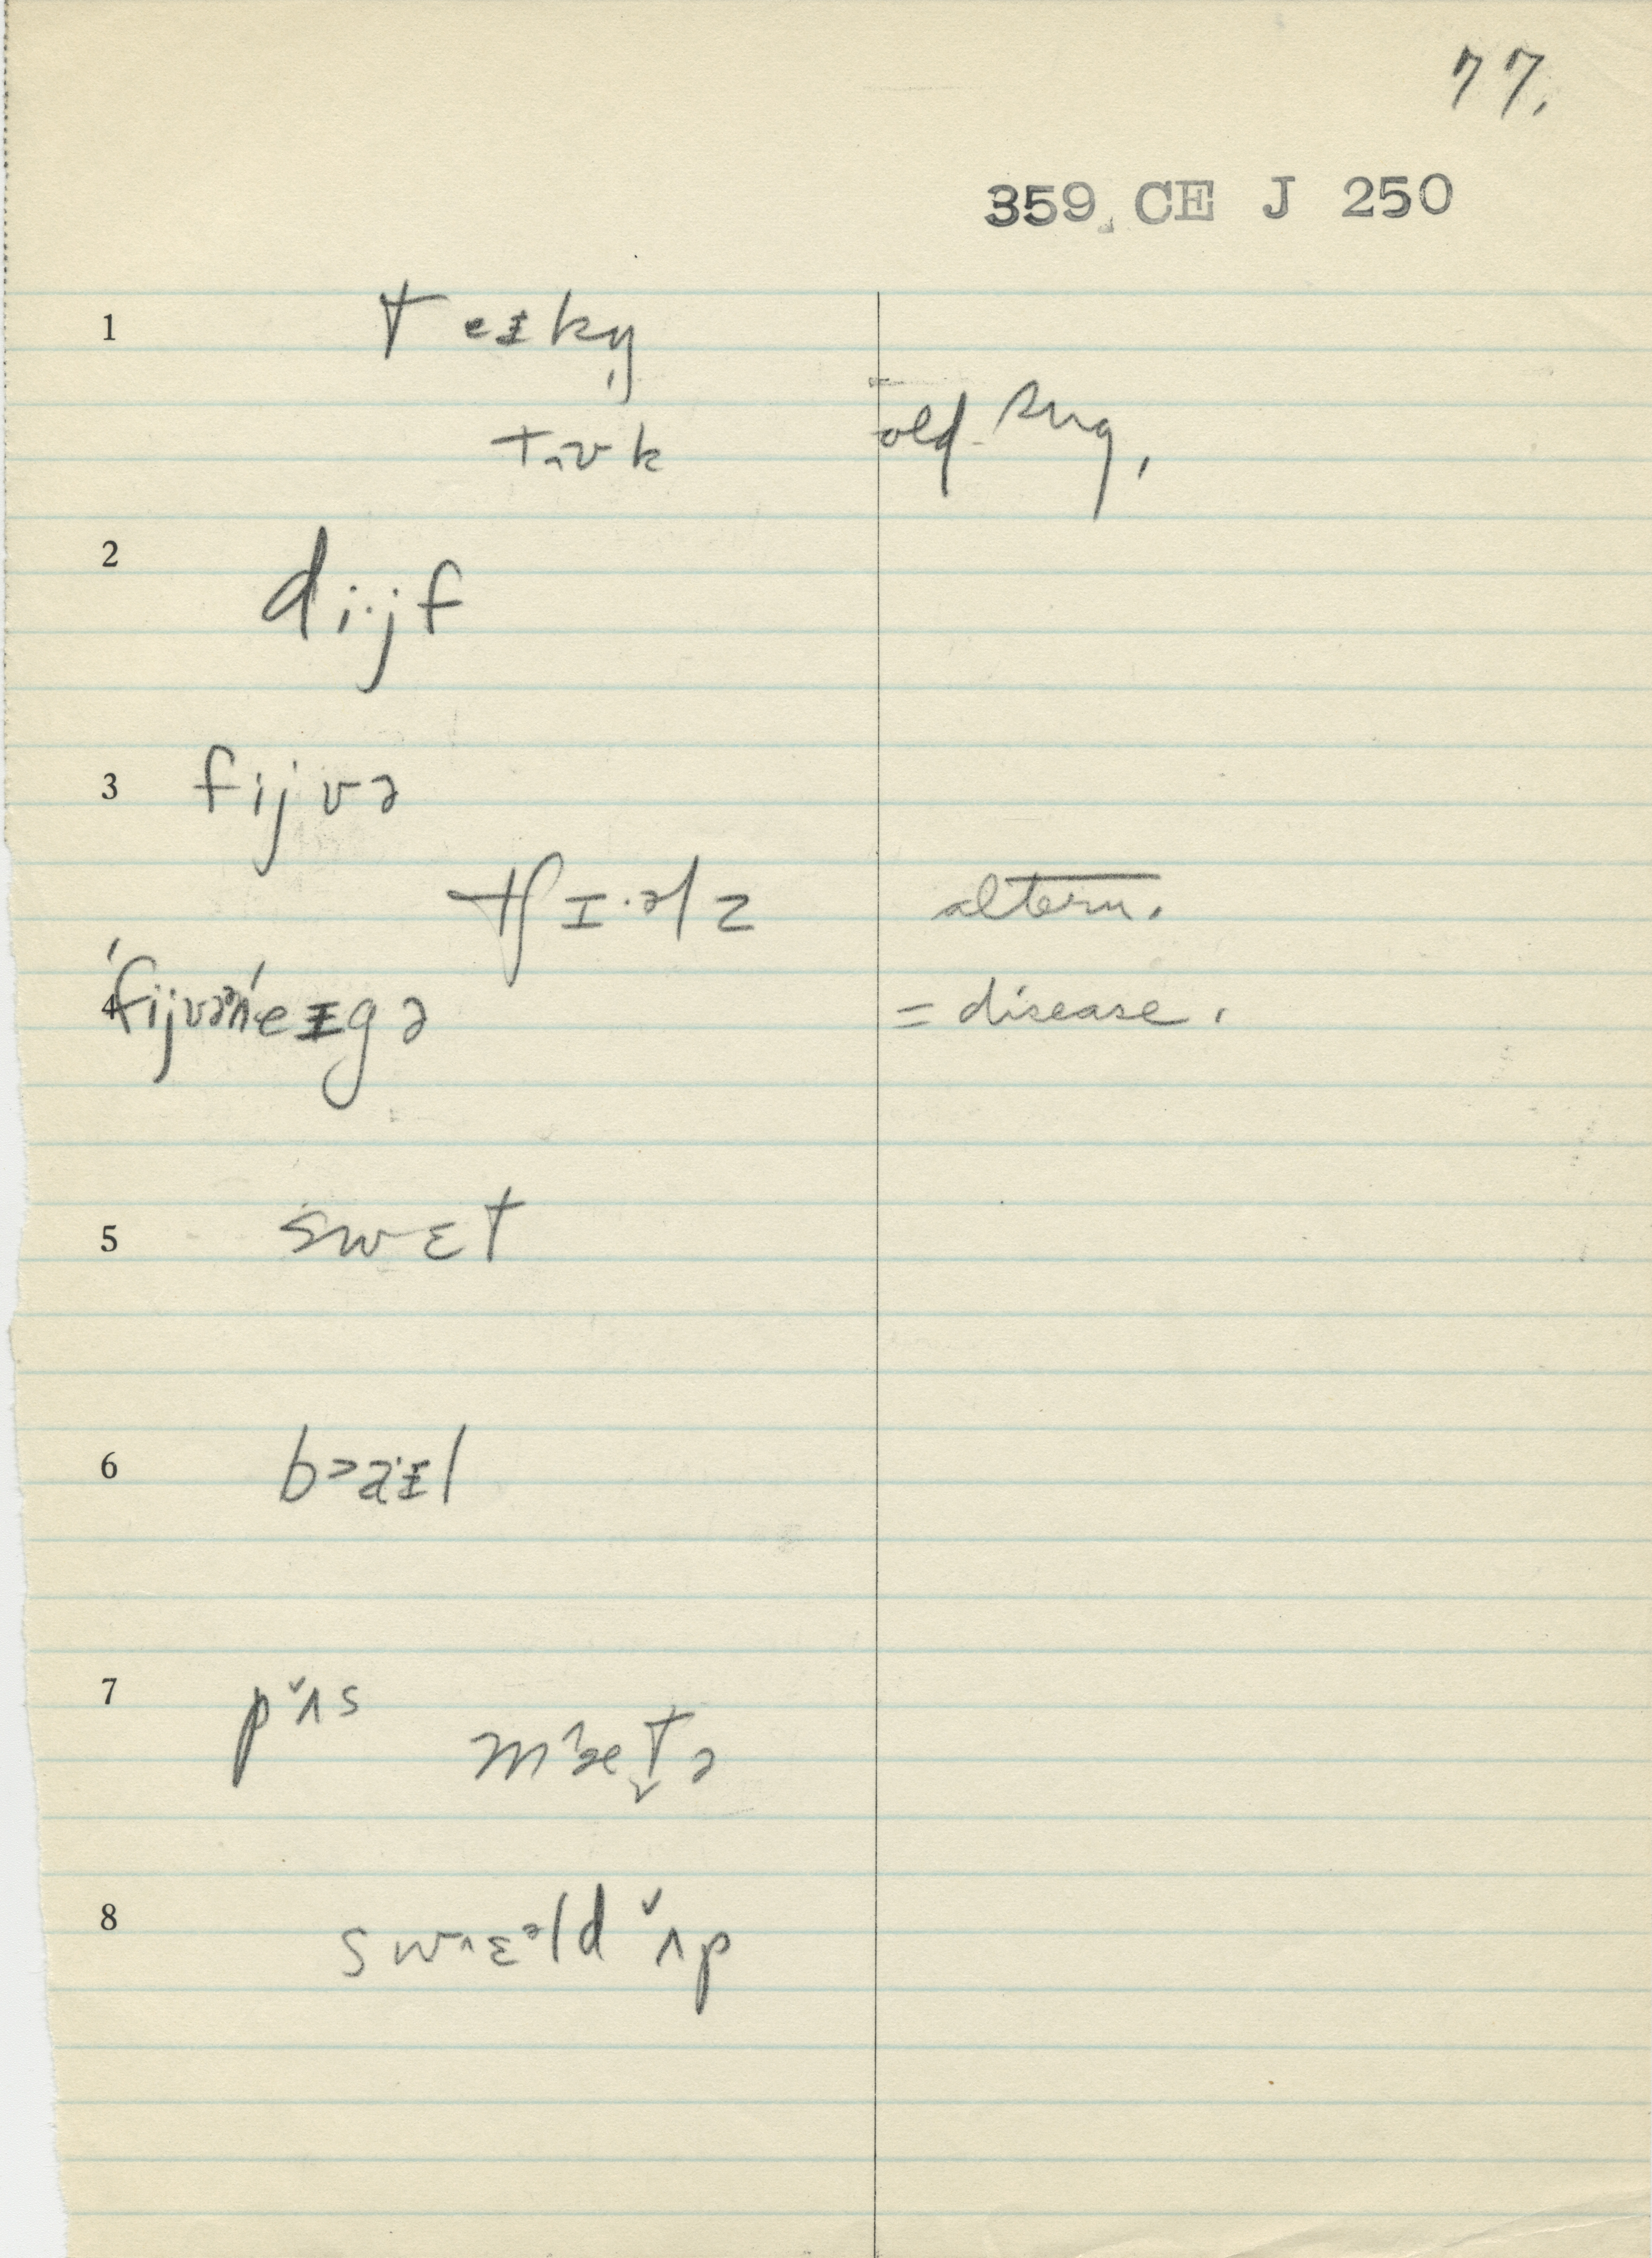 77.
359 CE J 250
1 teɪkn̩
tʌʊk old-sug.
2 di·jf
3 fijvə
tʃɪ·əlz altern.
4 ˈfijvənˈeɪgə = disease.
5 swɛt
6 bɔaɪl
7 p ̌ʌs
m˄æt̬ə
8 sw˄ɛᵊld ̌ʌp